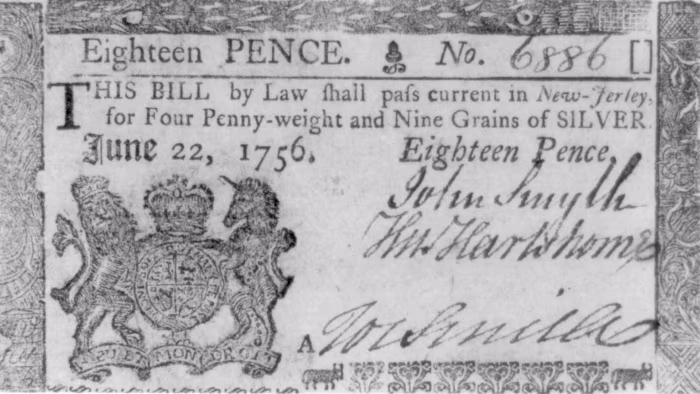 Eighteen PENCE. No. 6886 []
THIS BILL by Law ſhall paſs current in New-Jerſey,
for Four Penny-weight and Nine Grains of SILVER.
June 22, 1756. Eighteen Pence.
John Smyth
Hartshorne
A Smith
DIEU ET MON DROIT